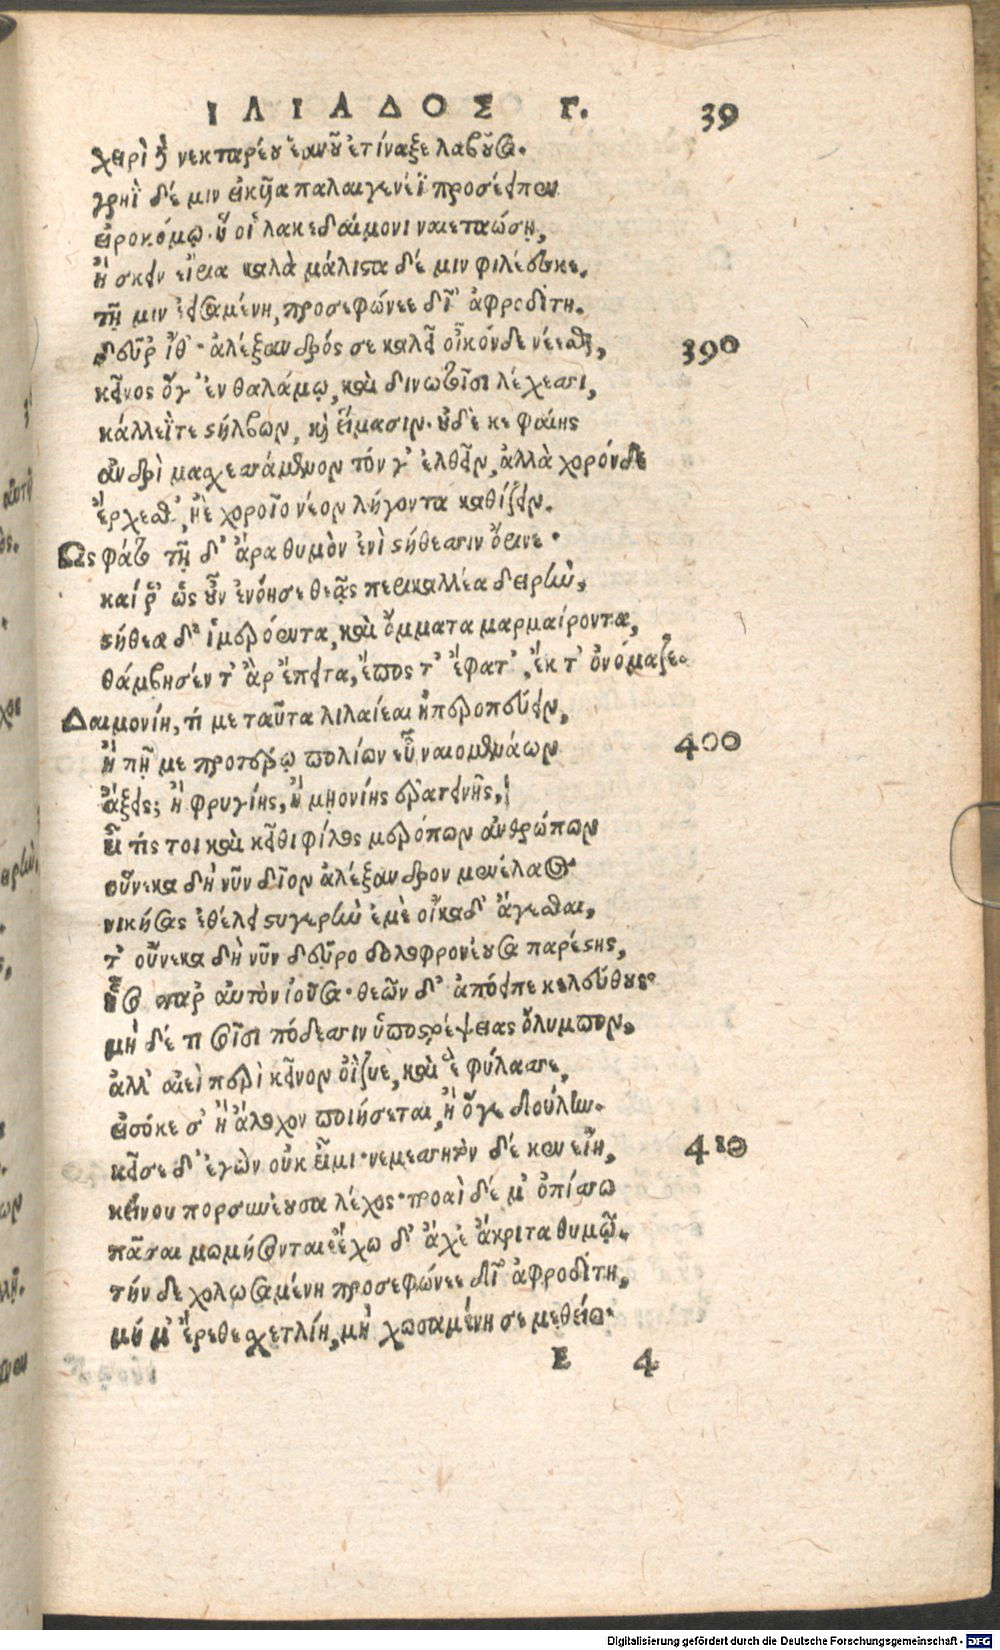 ΙΛΙΑΔΟΣ Γ. 39
χειρὶ δὲ νεκταρέου ἑανοῦ ἐτίναξε λαβοῦσα.
γρηῒ δέ μιν εἰκυῖα παλαιγενέϊ προσέειπεν
εἰροκόμῳ· ἥ οἱ λακεδαίμονι ναιεταώσῃ,
ἤσκειν εἴρια καλὰ μάλιστα δέ μιν φιλέεσκε.
τῇ μιν ἐεισαμένη, προσεφώνεε δῖ' ἀφροδίτη.
δεῦρ' ἴθ'· ἀλέξανδρός σε καλεῖ οἶκόνδε νέεσθαι, 390
κεῖνος ὅγ' ἐν θαλάμῳ, καὶ δινωτοῖσι λέχεσσι,
κάλλεΐτε στίλβων, καὶ εἵμασιν· οὐδέ κε φαίης
ἀνδρὶ μαχεσσάμενον τόν γ' ἐλθεῖν, ἀλλὰ χορόνδε
ἔρχεσθ', ἠὲ χοροῖο νέον λήγοντα καθίζειν.
Ὣς φάτο τῇ δ' ἄρα θυμὸν ἐνὶ στήθεσσιν ὄρινε·
καί ῥ' ὡς οὖν ἐνόησε θεᾶς περικαλλέα δειρὴν,
στήθεα δ' ἱμερόεντα, καὶ ὄμματα μαρμαίροντα,
θάμβησέν τ' ἂρ ἔπειτα, ἔπος τ' ἔφατ', ἔκ τ' ὀνόμαζε.
Δαιμονίη, τί με ταῦτα λιλαίεαι ἠπεροπεύειν,
ἤ πῃ με προτέρω πολίων εὖ ναιομενάων 400
ἄξεις; ἢ φρυγίης, ἢ μῃονίης ἐρατεινῆς,
εἴ τίς τοι καὶ κεῖθι φίλος μερόπων ἀνθρώπων
οὕνεκα δὴ νῦν δῖον ἀλέξανδρον μενέλαος
νικήσας ἐθέλει στυγερὴν ἐμὲ οἴκαδ' ἄγεσθαι,
τ' οὕνεκα δὴ νῦν δεῦρο δολοφρονέουσα παρέστης,
ἧσο παρ' αὐτὸν ἰοῦσα· θεῶν δ' ἀπόειπε κελεύθους·
μὴ δέ τι σοῖσι πόδεσσιν ὑποστρέψειας ὄλυμπον,
ἀλλ' αἰεὶ περὶ κεῖνον ὀΐζυε, καὶ ἑ φύλασσε,
εἰσόκε σ' ἢ ἄλοχον ποιήσεται, ἢ ὅγε δούλην.
κεῖσε δ' ἐγὼν οὐκ εἶμι· νεμεσσητὸν δέ κεν εἴη, 410
κείνου πορσυνέουσα λέχος· τρωαὶ δέ μ' ὀπίσσω
πᾶσαι μωμήσονται ἔχω δ' ἄχε' ἄκριτα θυμῷ.
τήν δε χολωσαμένη προσεφώνεε δῖ' ἀφροδίτη,
μή μ' ἔρεθε σχετλίη, μὴ χωσαμένη σε μεθείω·
E 4
Digitalisierung gefördert durch die Deutsche Forschungsgemeinschaft - DFG